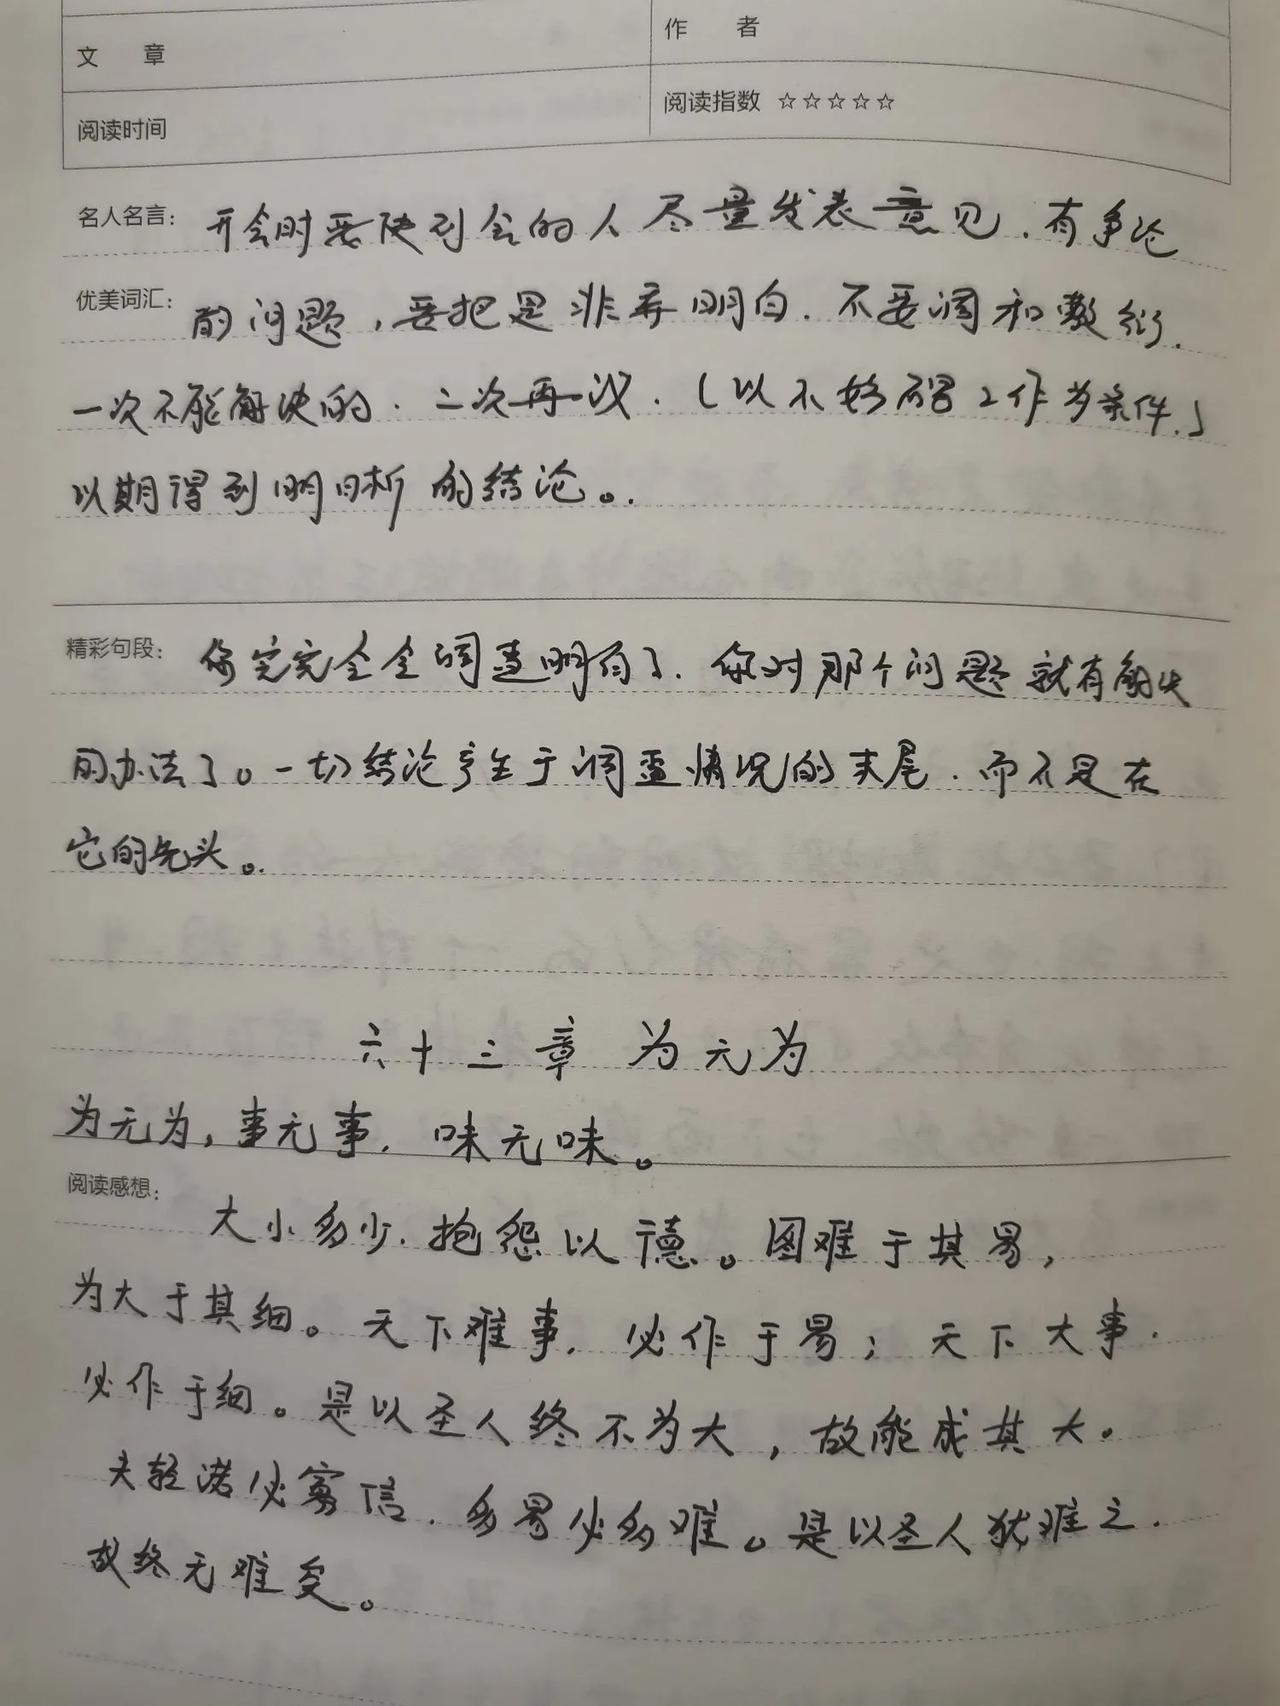 文 章
作 者
阅读时间
阅读指数 ☆☆☆☆☆
名人名言: 开会时要使到会的人尽量发表意见.有争论
优美词汇: 的问题,要把是非弄明白.不要调和敷衍.
一次不能解决的.二次再议.(以不妨碍工作为条件.」
以期得到明晰的结论。.
精彩句段: 你完完全全调查明白了.你对那个问题就有解决
的办法了。一切结论产生于调查情况的末尾.而不是在
它的先头。.
六十三章 为无为
为无为,事无事.味无味。
阅读感想: 大小多少.抱怨以德。图难于其易,
为大于其细。天下难事.必作于易;天下大事.
必作于细。是以圣人终不为大,故能成其大。
夫轻诺必寡信.多易必多难。是以圣人犹难之.
故终无难矣。